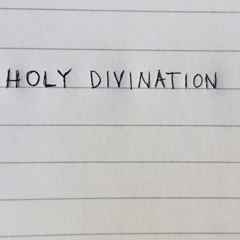 HOLY DIVINATION